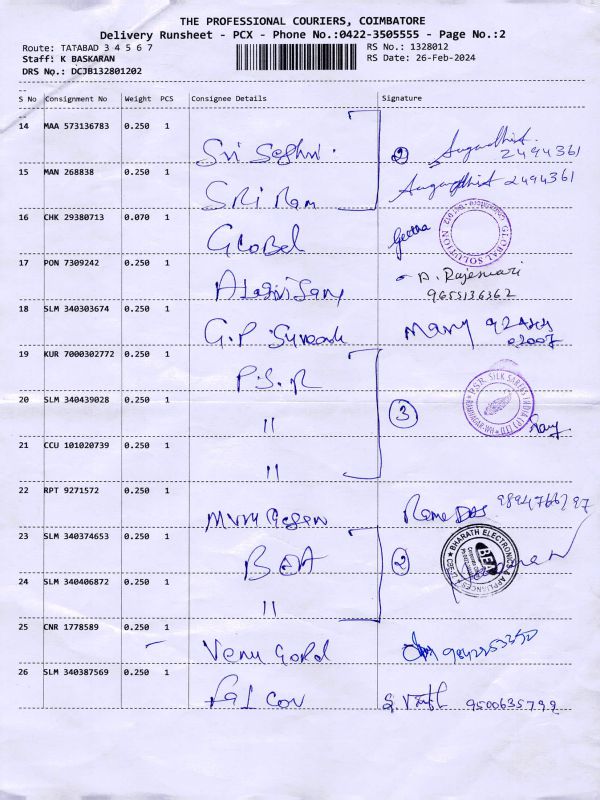 THE PROFESSIONAL COURIERS, COIMBATORE
Delivery Runsheet - PCX - Phone No.:0422-3505555 - Page No.:2
Route: TATABAD 3 4 5 6 7 RS No.: 1328012
Staff: K BASKARAN RS Date: 26-Feb-2024
DRS No.: DCJB132801202
S No Consignment No Weight PCS Consignee Details Signature
14 MAA 573136783 0.250 1 Sri Seghri. 2 2494361
15 MAN 268838 0.250 1 SRi Ram 2494361
16 CHK 29380713 0.070 1 Global Geetha GLOBAL SOLUTION
17 PON 7309242 0.250 1 A. Rajeswari
9655136362
18 SLM 340303674 0.250 1 G.P Mary
19 KUR 7000302772 0.250 1 P.S.R P.S.R. SILK SAREES INDIA (P) LTD
20 SLM 340439028 0.250 1 11 3
21 CCU 101020739 0.250 1 11
22 RPT 9271572 0.250 1 Murugesan Ramedas 9894766297
23 SLM 340374653 0.250 1 BEA 2 BHARATH ELECTRONICS & APPLIANCES BEA
24 SLM 340406872 0.250 1 11
25 CNR 1778589 0.250 1 Venu Gold
26 SLM 340387569 0.250 1 Falcon S. 9500635799